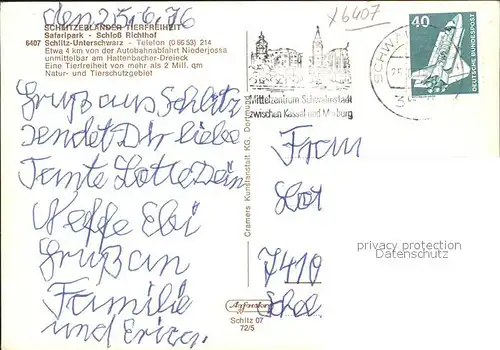 den 25.6.76
X6407
SCHLITZERLÄNDER TIERFREIHEIT
Safaripark - Schloß Richthof
6407 Schlitz-Unterschwarz - Telefon (0 66 53) 214
Etwa 4 km von der Autobahnabfahrt Niederjossa
unmittelbar am Hattenbacher-Dreieck
Eine Tierfreiheit von mehr als 2 Mill. qm
Natur- und Tierschutzgebiet
Mittelzentrum Schwalmstadt
zwischen Kassel und Marburg
SCHWA
40
DEUTSCHE BUNDESPOST
Gruß aus Schlitz
sendet Dir liebe
Tante Lotte Dein
Neffe Ebi
Gruß an
Familie
und Erica.
Cramers Kunstanstalt KG, Dortmund
Frau
Lot
7410
privacy protection
Datenschutz
Schlitz 07
72/5